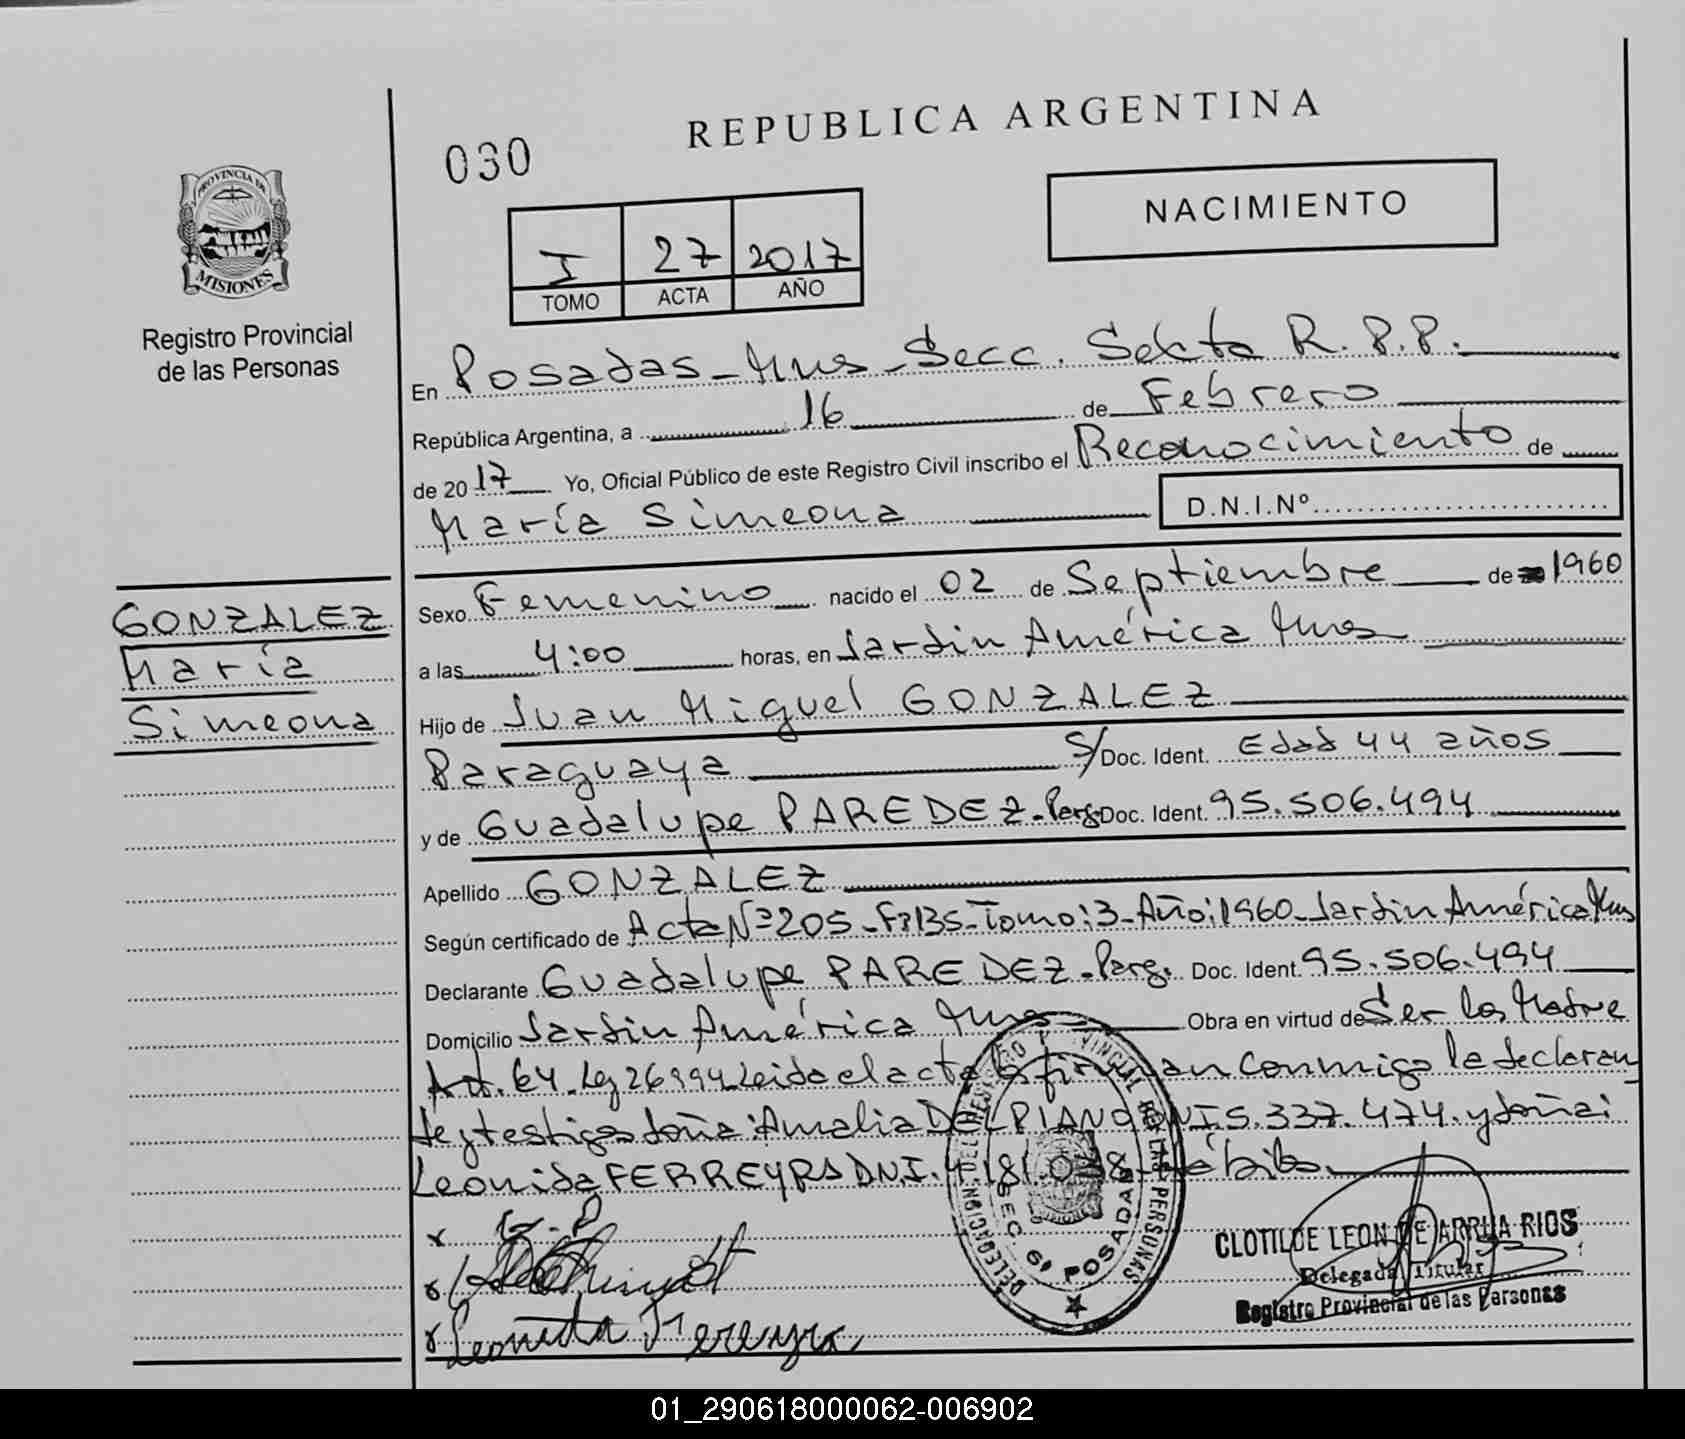 REPUBLICA ARGENTINA
030
NACIMIENTO
PROVINCIA DE
MISIONES
I 27 2017
TOMO ACTA AÑO
Registro Provincial
de las Personas
En Posadas - Mnes - Secc. Sexta R.P.P.
República Argentina, a 16 de Febrero
de 2017 Yo, Oficial Público de este Registro Civil inscribo el Reconocimiento de
María Simeona D.N.I.Nº
GONZALEZ
María
Simeona
Sexo Femenino nacido el 02 de Septiembre de 1960
a las 4:00 horas, en Jardin América Mnes
Hijo de Juan Miguel GONZALEZ
Paraguaya S/Doc. Ident. Edad 44 años
y de Guadalupe PAREDEZ - Parg Doc. Ident. 95.506.494
Apellido GONZALEZ
Según certificado de Acta Nº 205 - Fº 135 - Tomo: 3 - Año: 1960 - Jardin América Mnes
Declarante Guadalupe PAREDEZ - Parg. Doc. Ident. 95.506.494
Domicilio Jardin América Mnes Obra en virtud de Ser la Madre
Art. 64 - Ley 26994 Leida el acta la firman conmigo la declaran
te y testigos doña: Amalia DEL PIANO DNI 5.337.474. y doña:
Leonida FERREYRA D.N.I. 4.181. hábiles
x G. P
x
x Leonida Ferreyra
DELEGACION DEL REGISTRO PROVINCIAL DE LAS PERSONAS
SEC 6ª POSADAS
CLOTILDE LEON DE ARRUA RIOS
Delegada Titular
Registro Provincial de las Personas
01_290618000062-006902